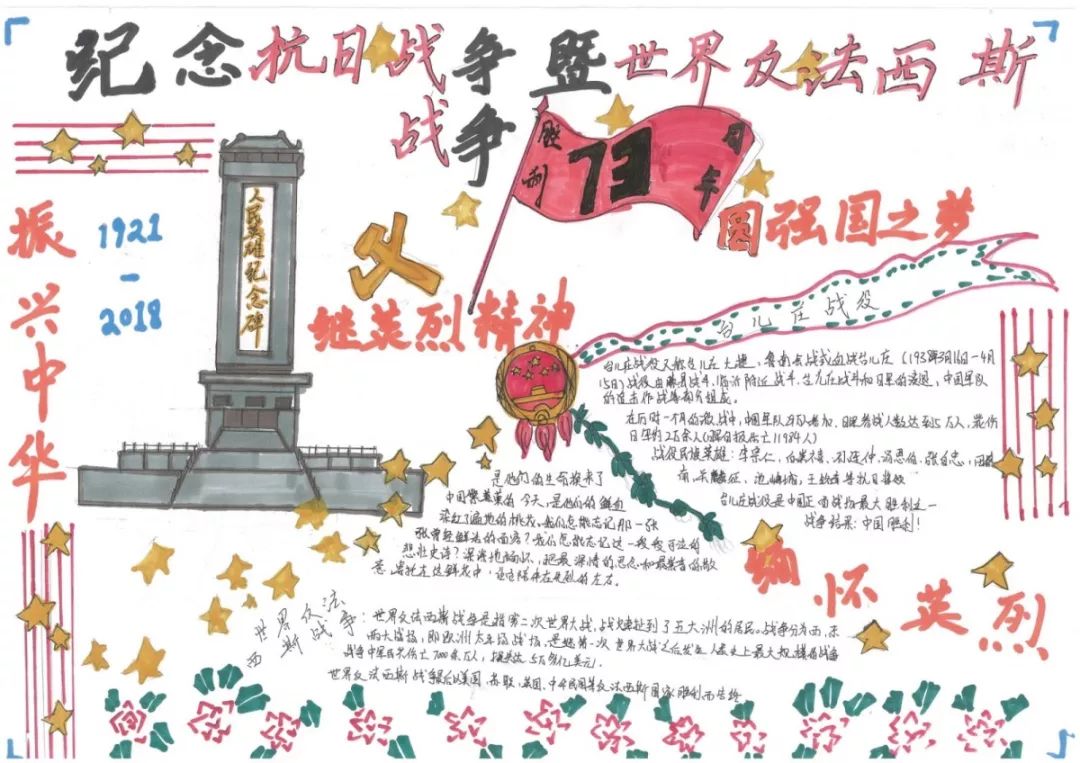 纪念抗日战争暨世界反法西斯
战争
胜利
73
周年
振兴中华
1921
-
2018
人民英雄纪念碑
圆强国之梦
继英烈精神
台儿庄战役
台儿庄战役又称台儿庄大捷，鲁南会战或血战台儿庄（1938年3月16日-4月
15日）战役由滕县战斗，临沂附近战斗，台儿庄战斗和日军的溃退，中国军队
的追击作战等部分组成。
在历时一个月的激战中，中国军队 参加，日军参战人数达到5万人，歼伤
日军约2万余人（日军自报伤亡11984人）
战役民族英雄：李宗仁、白崇禧、孙连仲、汤恩伯、张自忠、田镇
南、关麟征、池峰城、王铭章等抗日英雄
台儿庄战役是中国正面战场最大胜利之一
战争结果：中国胜利！
是他们的生命换来了
中国繁荣的今天，是他们的鲜血
染红了遍地的桃花。我们怎能忘记那一张
张曾经鲜活的面容？我们怎能忘记这一段段可泣的
悲壮史诗？深深地缅怀，把最深情的思念和最崇高的敬
意寄托在这鲜花中，让它陪伴在先烈的左右。
缅怀英烈
世界反法
西斯战争：
世界反法西斯战争是指第二次世界大战，战火燃到了五大洲的居民。战争分为西、东
两大战场，即欧洲 战场，是继第一次世界大战之后发生人类史上最大规模的战争
战争中军民共伤亡7000余万人，损失达5万多亿美元。
世界反法西斯战争最后以美国、苏联、英国、中华民国等反法西斯国家胜利而告终